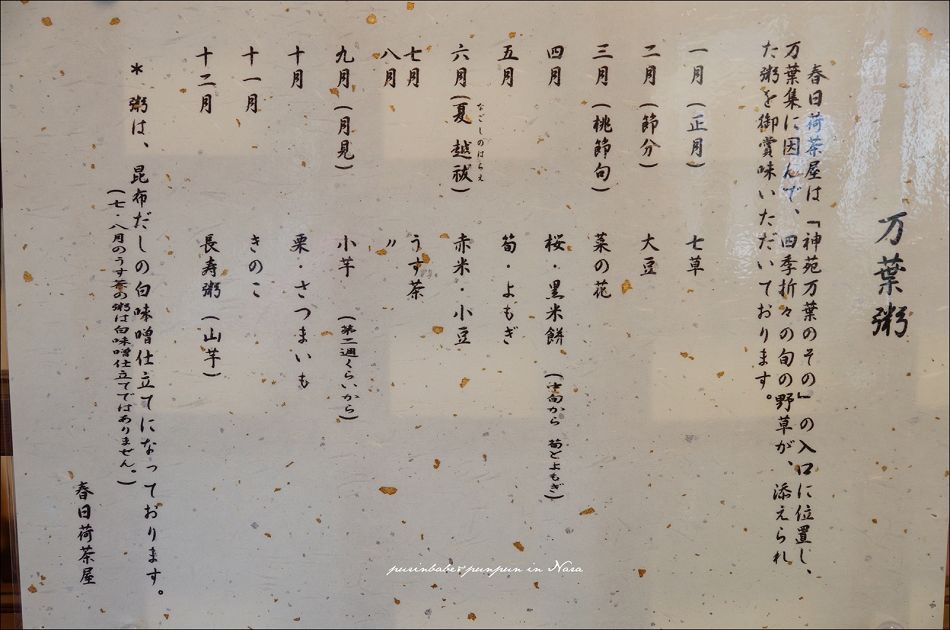 万葉粥
春日荷茶屋は「神苑万葉のその」の入口に位置し、
万葉集に因んで、四季折々の旬の野草が、添えられ
た粥を御賞味いただいております。
一月(正月) 七草
二月(節分) 大豆
三月(桃節句) 菜の花
四月 桜・黒米餅 (中旬から 筍とよもぎ)
五月 筍・よもぎ
六月(夏越祓) 赤米・小豆
なごしのはらえ
七月 うす茶
八月 〃
九月(月見) 小芋 (第二週くらいから)
十月 栗・さつまいも
十一月 きのこ
十二月 長寿粥(山芋)
* 粥は、昆布だしの白味噌仕立てになっております。
(七・八月のうす茶の粥は白味噌仕立てではありません。)
春日荷茶屋
purinbabe&punpun in Nara